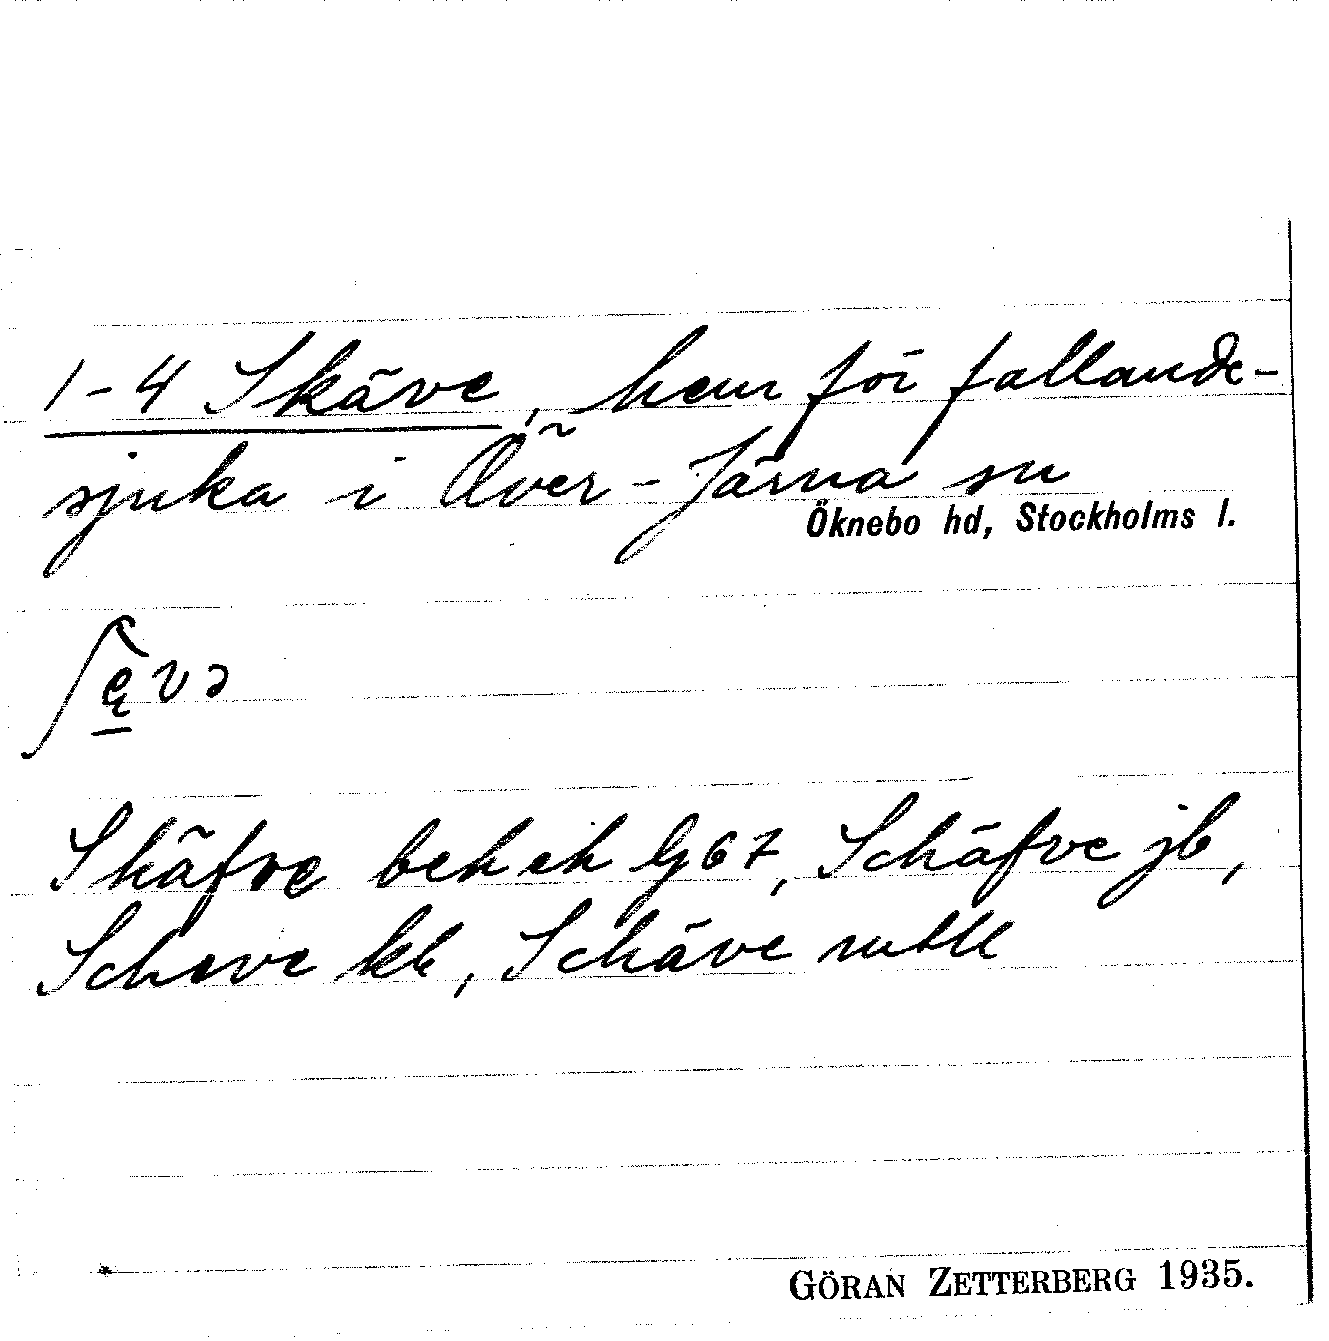 1-4 Skäve, hem för fallande-
sjuka i Över-Järna sn
Öknebo hd, Stockholms l.
ʃę̱və
Skäfve bek ek Gj67, Schäfve jb,
Scheve kb, Schäve mtll
GÖRAN ZETTERBERG 1935.